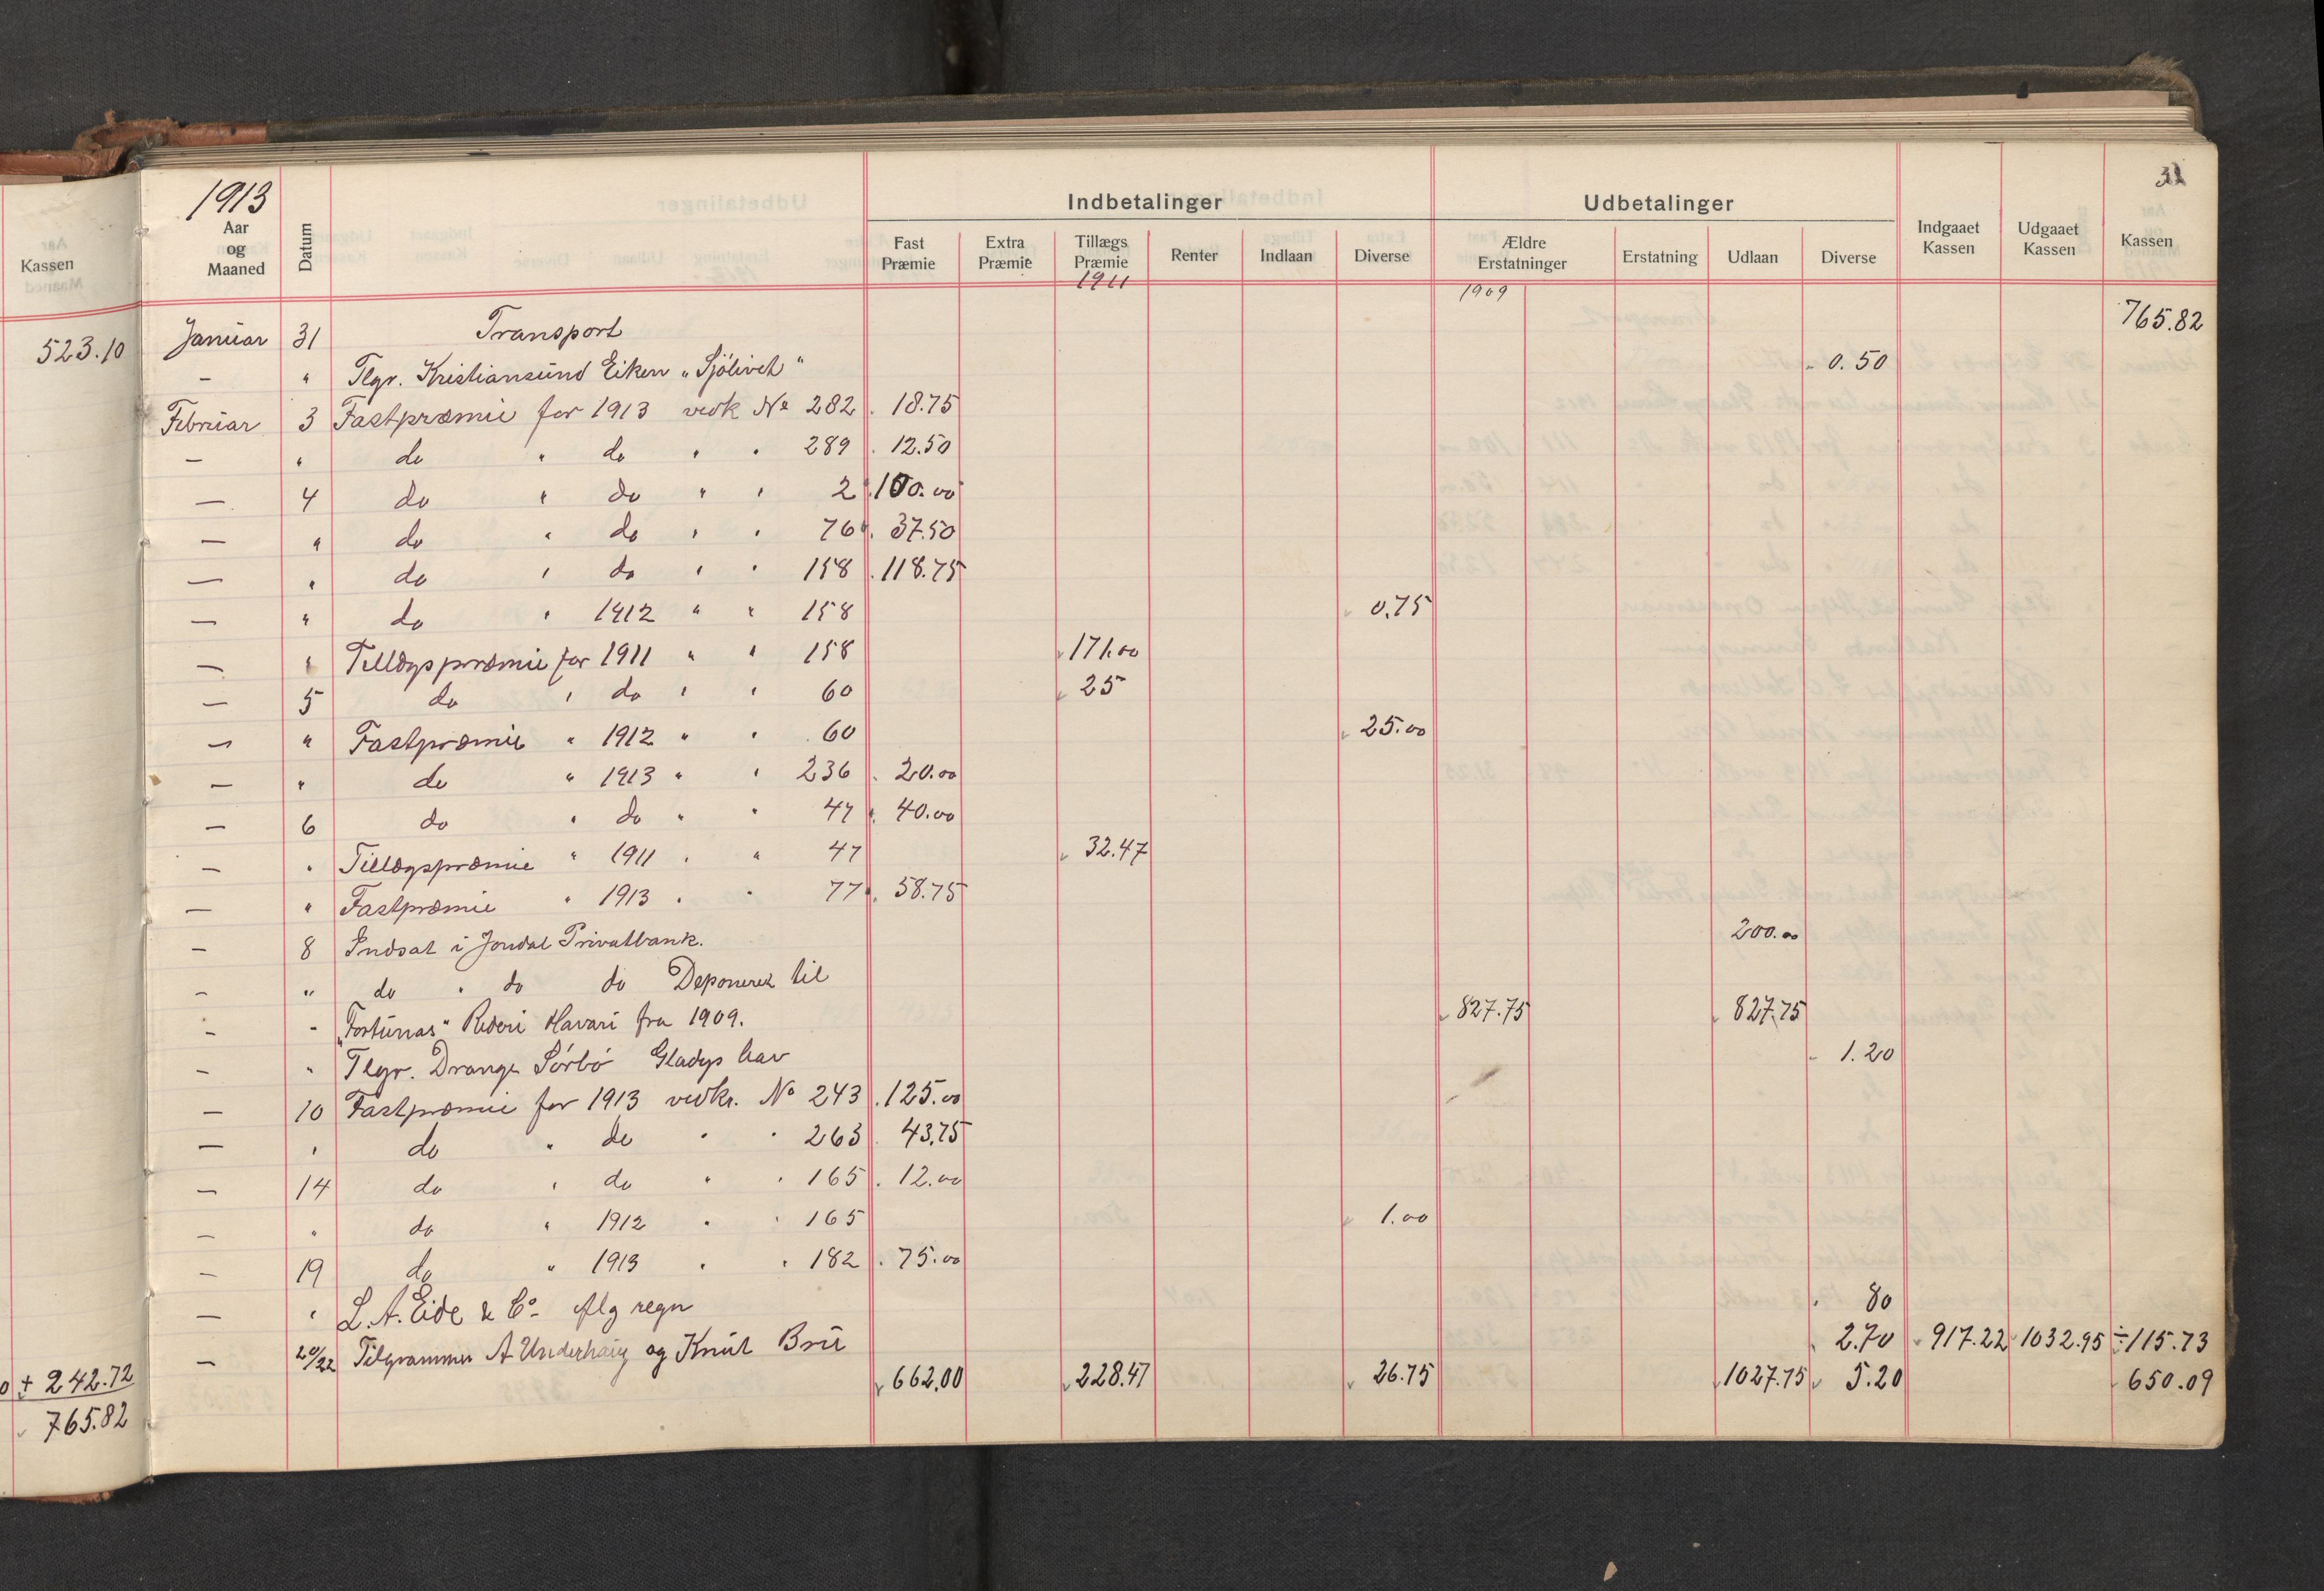 Kassen
523.10
± 242.72
765.82
31
1913
Aar og Maaned
Datum
Indbetalinger
Udbetalinger
Fast Præmie
Extra Præmie
Tillægs Præmie 1911
Renter
Indlaan
Diverse
Ældre Erstatninger 1909
Erstatning
Udlaan
Diverse
Indgaaet Kassen
Udgaaet Kassen
Kassen
Januar 31 Transport 765.82
— " Tlgr. Kristiansund Eiken 0.50
Februar 3 Fastpræmie for 1913 vedk No 282 18.75
— " do " do " " 289 12.50
— 4 do " do " " 2 100.00
— " do " do " " 76 37.50
— " do " do " " 158 118.75
— " do " 1912 " " 158 0.75
— " Tillægspræmie for 1911 " " 158 171.00
— 5 do " do " " 60 25
— " Fastpræmie " 1912 " " 60 25.00
— " do " 1913 " " 236 20.00
— 6 do " do " " 47 40.00
— " Tillægspræmie " 1911 " " 47 32.47
— " Fastpræmie " 1913 " " 77 58.75
— 8 Indsat i Jondal Privatbank. 200.00
— " do " do do Deponeret til
— " „Fortunas" Rederi Havari fra 1909. 827.75 827.75
— " Tlgr. Drange Sørbø Gladys hav 1.20
— 10 Fastpræmie for 1913 vedkr. No 243 125.00
— " do " do " " 263 43.75
— 14 do " do " " 165 12.00
— " do " 1912 " " 165 1.00
— 19 do " 1913 " " 182 75.00
— " L. A. Eide & Co. Afg regn 80
— 20/22 Tilgrammer A Underhaug og Knut Bru 2.70 917.22 1032.95 ÷115.73
662.00 228.47 26.75 1027.75 5.20 650.09